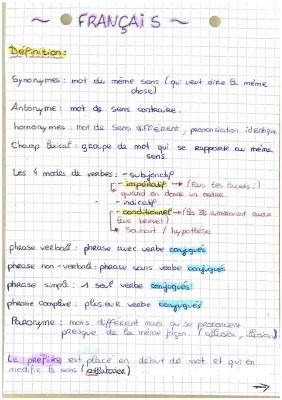 ~ FRANÇAIS ~
Définition:
Synonymes: mot du même sens (qui veut dire la même
chose)
Antonyme: mot de sens contraire.
homonymes: mot de sens différent, prononciation identique
Champ lexical: groupe de mot qui se rapporte au même
sens.
Les 4 modes de verbes: - subjonctif
- impératif → (Fais tes lacets:)
quand on donne un ordre.
- indicatif
- conditionnel → (les 3B aimeraient avoir
leur brevet)
↳ Souhait / hypothèse
phrase verbale: phrase avec verbe conjugués
phrase non-verbale: phrase sans verbe conjugués
phrase simple: 1 seul verbe conjugués
phrase complexe: plusieur verbe conjugués
Paronyme: mots différent mais qui se prononcent
presque de la même façon. (allusion, illusion)
Le préfixe est placé en début de mot et qui en
modifie le sens (collaborer)
→